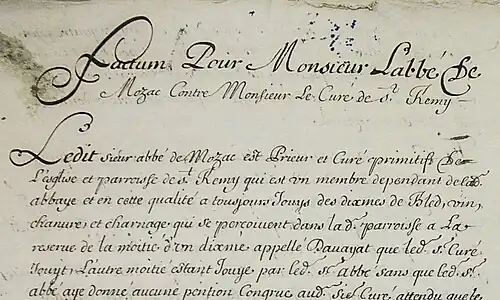 Factum Pour Monsieur L'abbé De
Mozac Contre Monsieur Le Curé de s.t Remy
Ledit sieur abbé de Mozac est Prieur et Curé primitif de
L'eglise et parroisse de s.t Remy qui est vn membre dependant de lad.
abbaye et en cette qualité a tousjours Jouys des dixmes de Bled, vin,
chanure, et charnage qui se perçoiuent dans la d. parroisse a La
reserue de la moitié d'vn dixme appellé Dauayat que led. s.r Curé
Jouyt, L'autre moitié estant Jouye par led. s.r abbé sans que led. s.r
abbé aye donné aucune pention Congrue aud. s.r Curé attendu que le